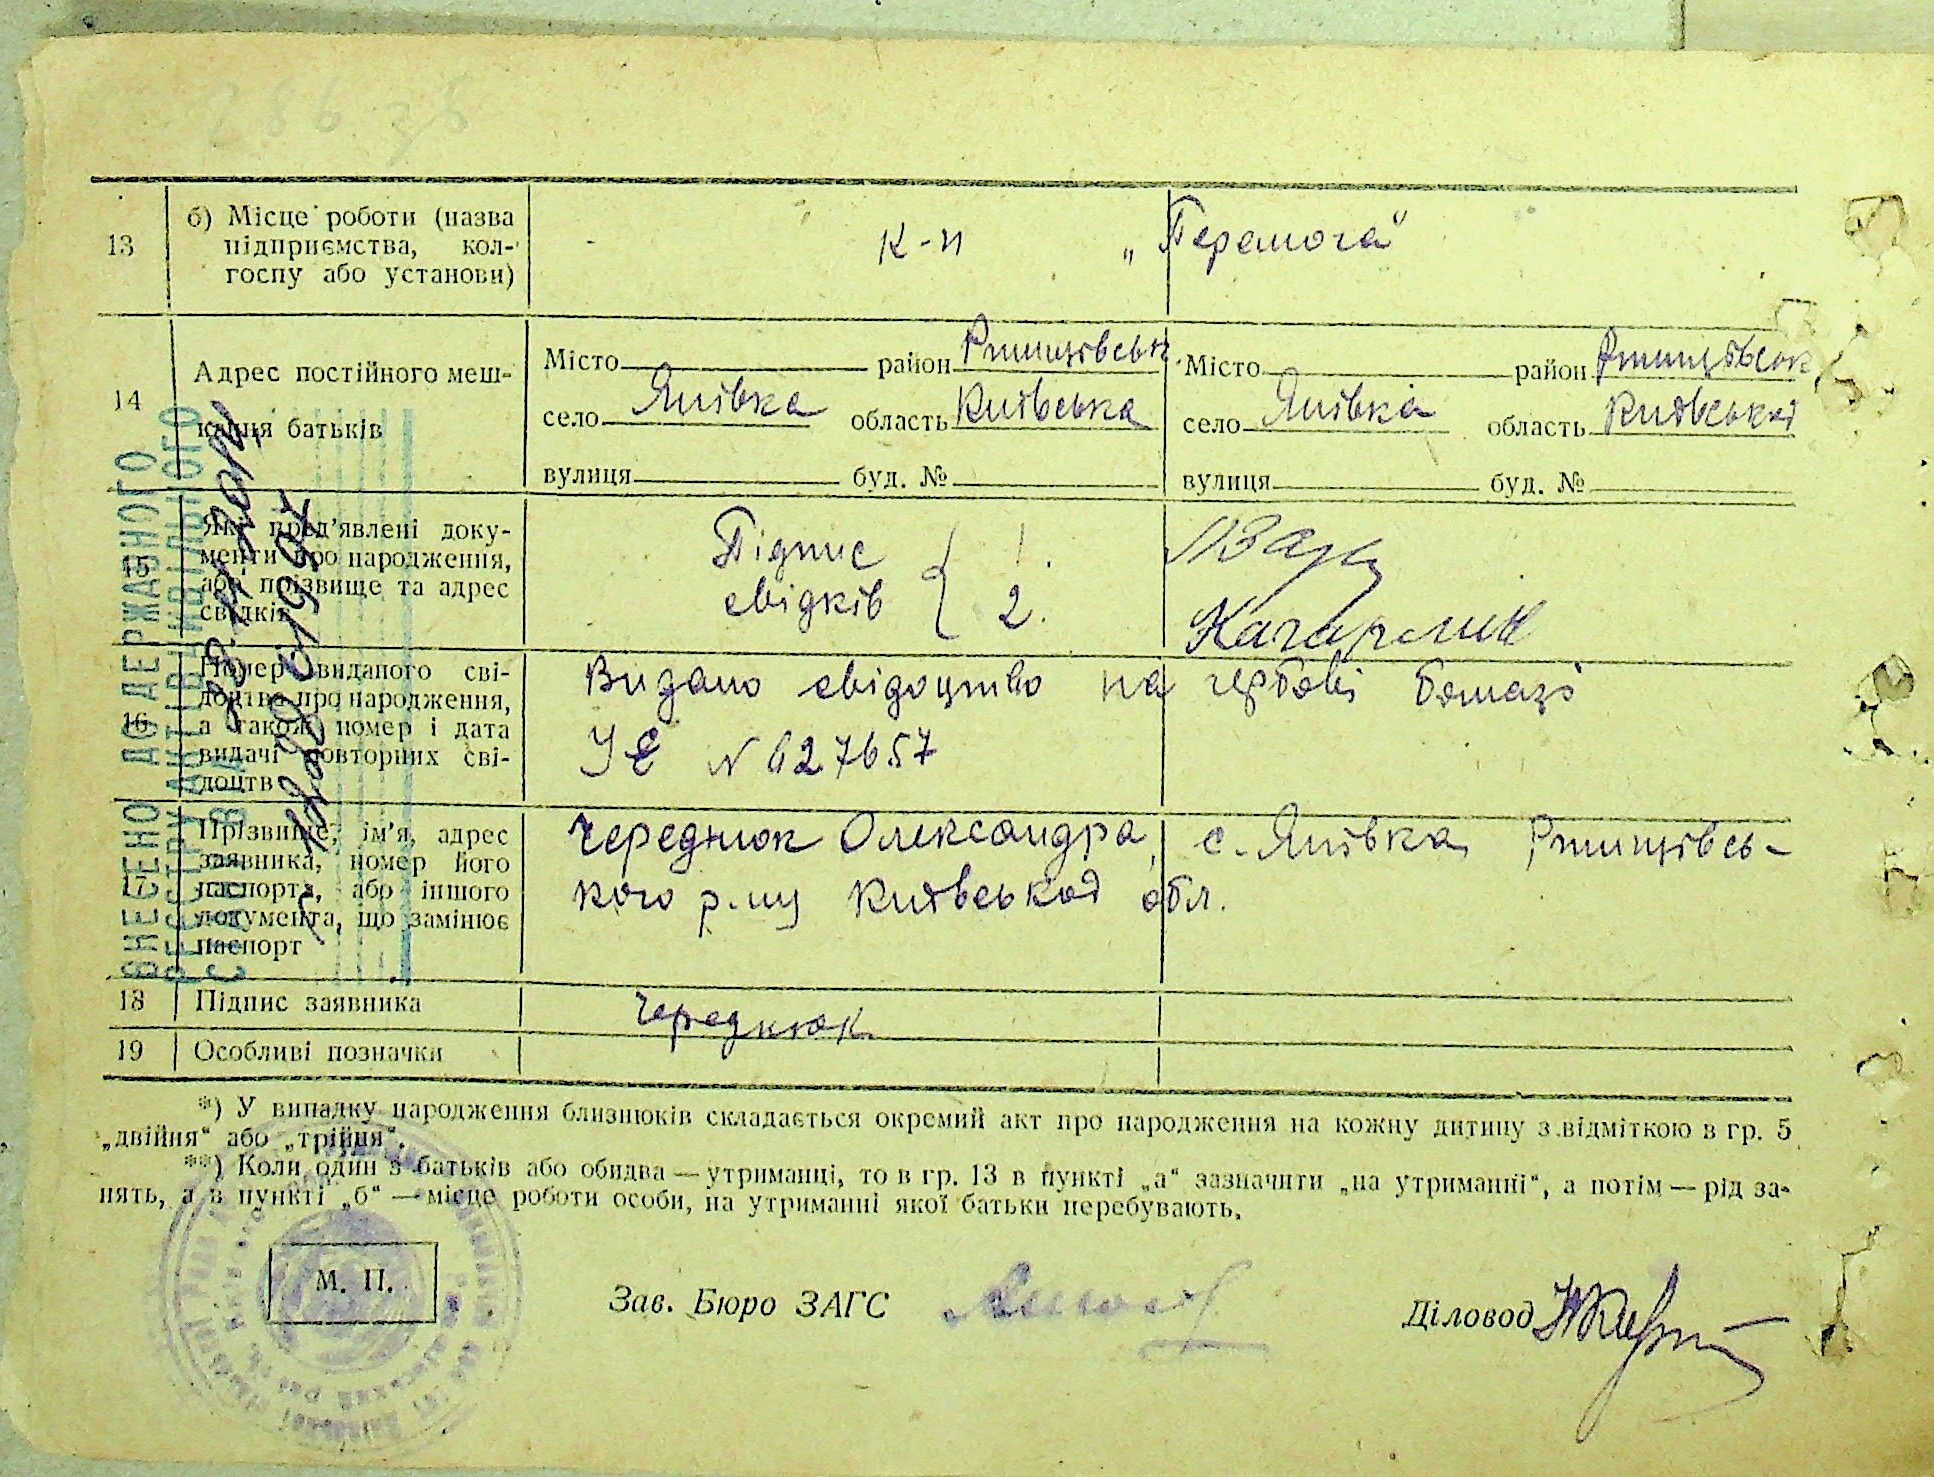 13 б) Місце роботи (назва
підприємства, кол-
госпу або установи)
к-п „Перемога“
14 Адрес постійного меш-
кання батьків
Місто район Ржищівськ. Місто район Ржищівськ
село Янівка область Київська село Янівка область Київської
вулиця буд. № вулиця буд. №
15 Які пред'явлені доку-
менти про народження,
або прізвище та адрес
свідків
Підпис 1.
свідків 2.
Кагарлик
16 Номер виданого сві-
доцтва про народження,
а також номер і дата
видачі повторних сві-
доцтв
Видано свідоцтво на гербові бумазі
УЄ N 627657
17 Прізвище, ім'я, адрес
заявника, номер його
паспорта, або іншого
документа, що замінює
паспорт
Череднюк Олександра, с. Янівка Ржищівсь-
кого р-ну Київської обл.
18 Підпис заявника
Череднюк
19 Особливі позначки
ВНЕСЕНО ДО ДЕРЖАВНОГО
РЕЄСТРУ АКТІВ ЦИВІЛЬНОГО
*) У випадку народження близнюків складається окремий акт про народження на кожну дитину з відміткою в гр. 5
„двійня“ або „трійня“.
**) Коли один з батьків або обидва — утриманці, то в гр. 13 в пункті „а“ зазначити „на утриманні“, а потім — рід за-
нять, а в пункті „б“ — місце роботи особи, на утриманні якої батьки перебувають.
М. П.
Зав. Бюро ЗАГС
Діловод